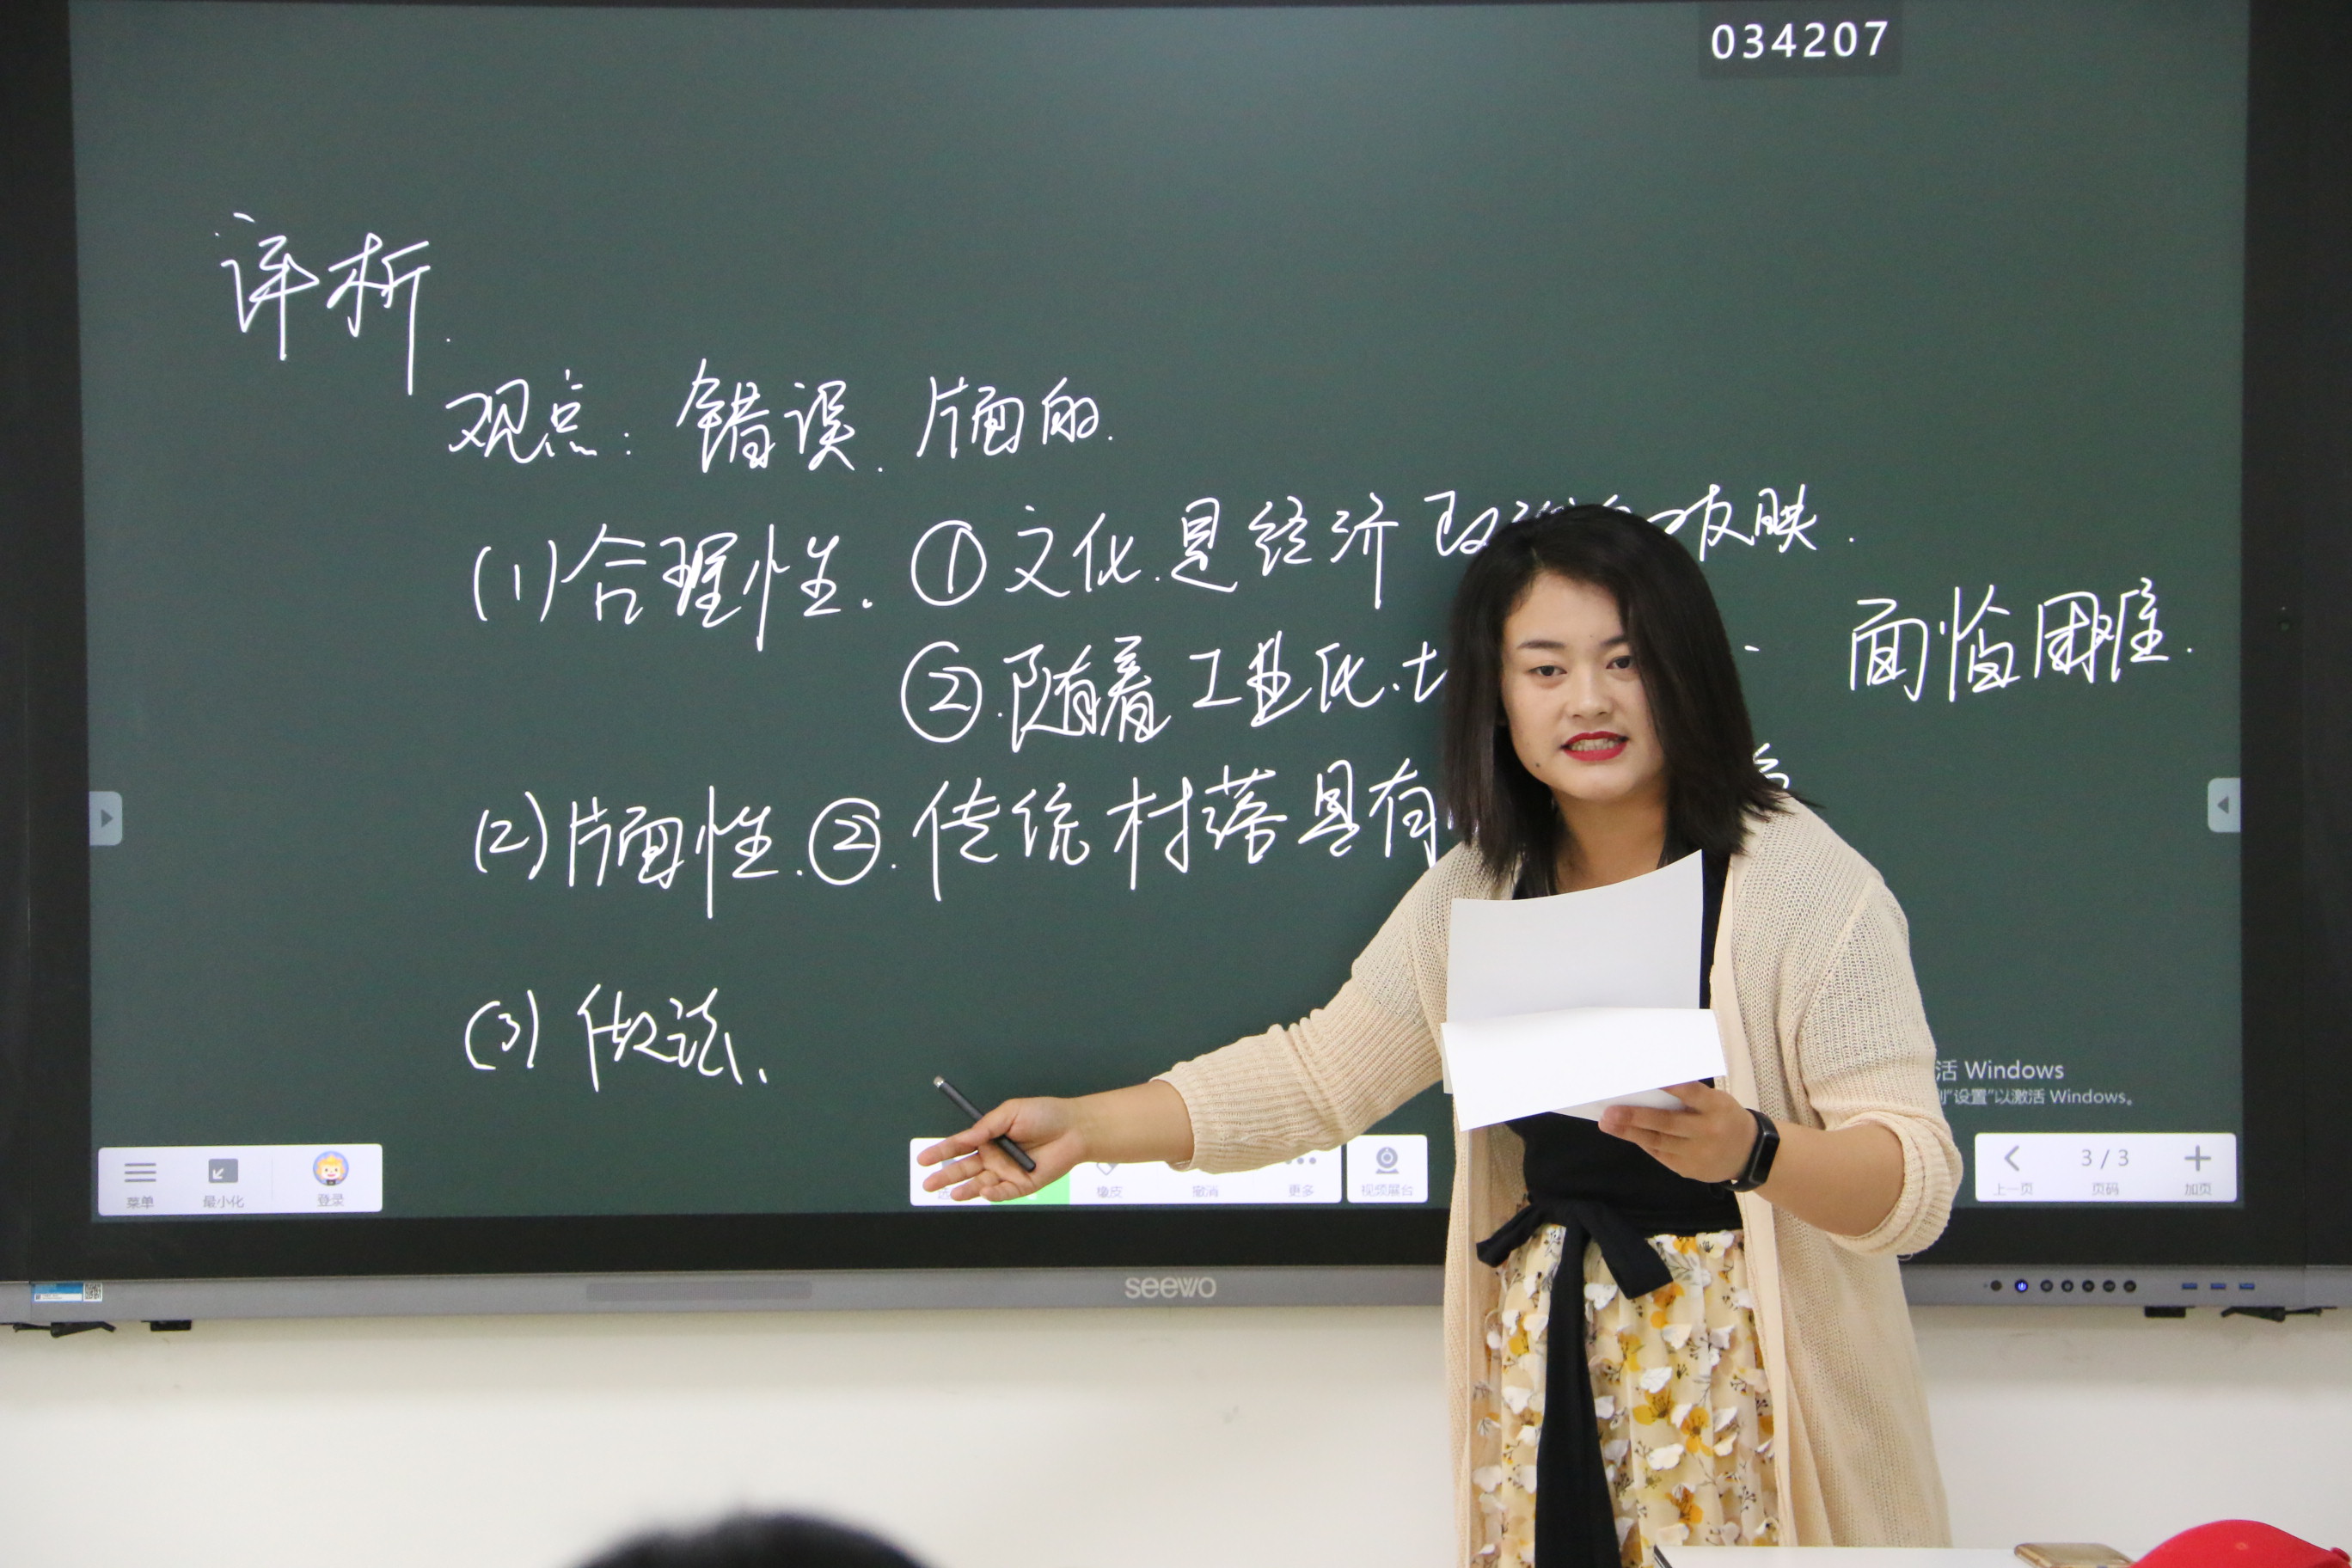 034207
评析.
观点: 错误. 片面的.
(1)合理性. ①文化.是经济政 反映.
②.随着工业化. 面临困难.
(2)片面性.②.传统村落具有
(3)做法.
活 Windows
到"设置"以激活 Windows。
菜单 最小化 登录
橡皮 撤消 更多 视频展台
3 / 3
上一页 页码 加页
seewo